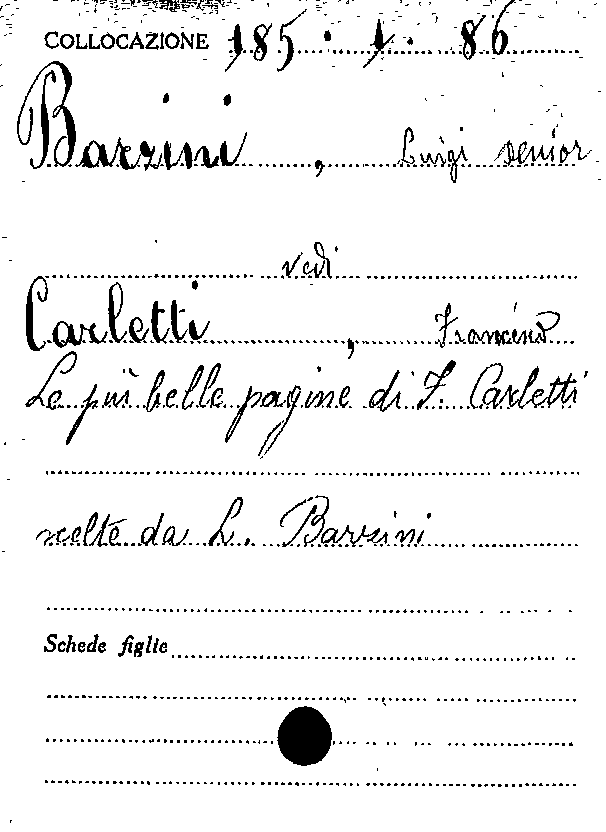 COLLOCAZIONE 185.1.86
Barzini, Luigi senior
vedi
Carletti, Francesco
Le più belle pagine di F. Carletti
scelte da L. Barzini
Schede figlie